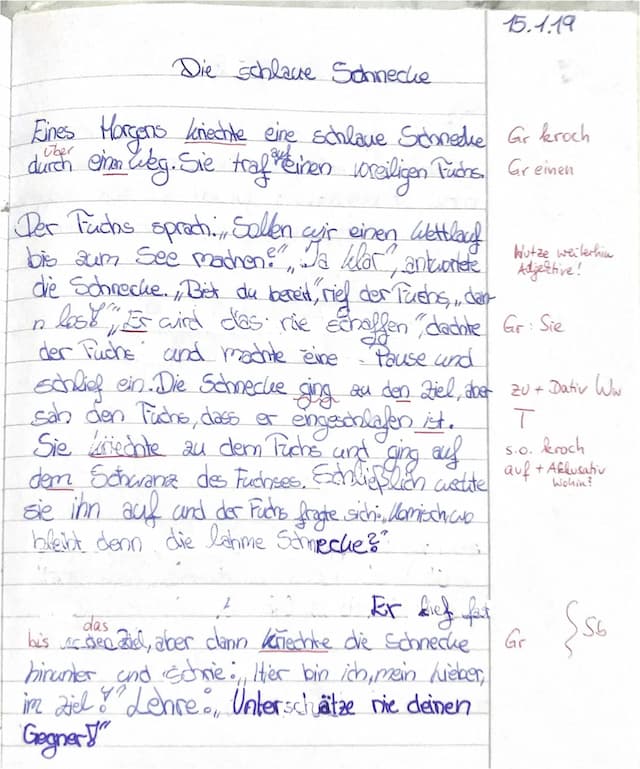 15.1.19
Die schlaue Schnecke
Eines Morgens kriechte eine schlaue Schnecke Gr kroch
über auf
durch einen Weg. Sie traf einen voreiligen Fuchs. Gr einen
Der Fuchs sprach: „Sollen wir einen Wettlauf
bis zum See machen?" „Ja klar", antwortete Nutze weiterhin
Adjektive!
die Schnecke. „Bist du bereit", rief der Fuchs, „dan-
n los!" „Er wird das nie schaffen", dachte Gr: Sie
der Fuchs und machte eine Pause und
schlief ein. Die Schnecke ging zu den Ziel, aber zu + Dativ Ww
sah den Fuchs, dass er eingeschlafen ist. T
Sie kriechte zu dem Fuchs und ging auf s.o. kroch
dem Schwanz des Fuchses. Schließlich weckte auf + Akkusativ
Wohin?
sie ihn auf und der Fuchs fragte sich: „Komisch wo
bleibt denn die lahme Schnecke?"
Er lief fast
das
bis den Ziel, aber dann kriechte die Schnecke Gr } Sb
hinunter und schrie: „Hier bin ich, mein Lieber,
im Ziel!" Lehre: „Unterschätze nie deinen
Gegner!"